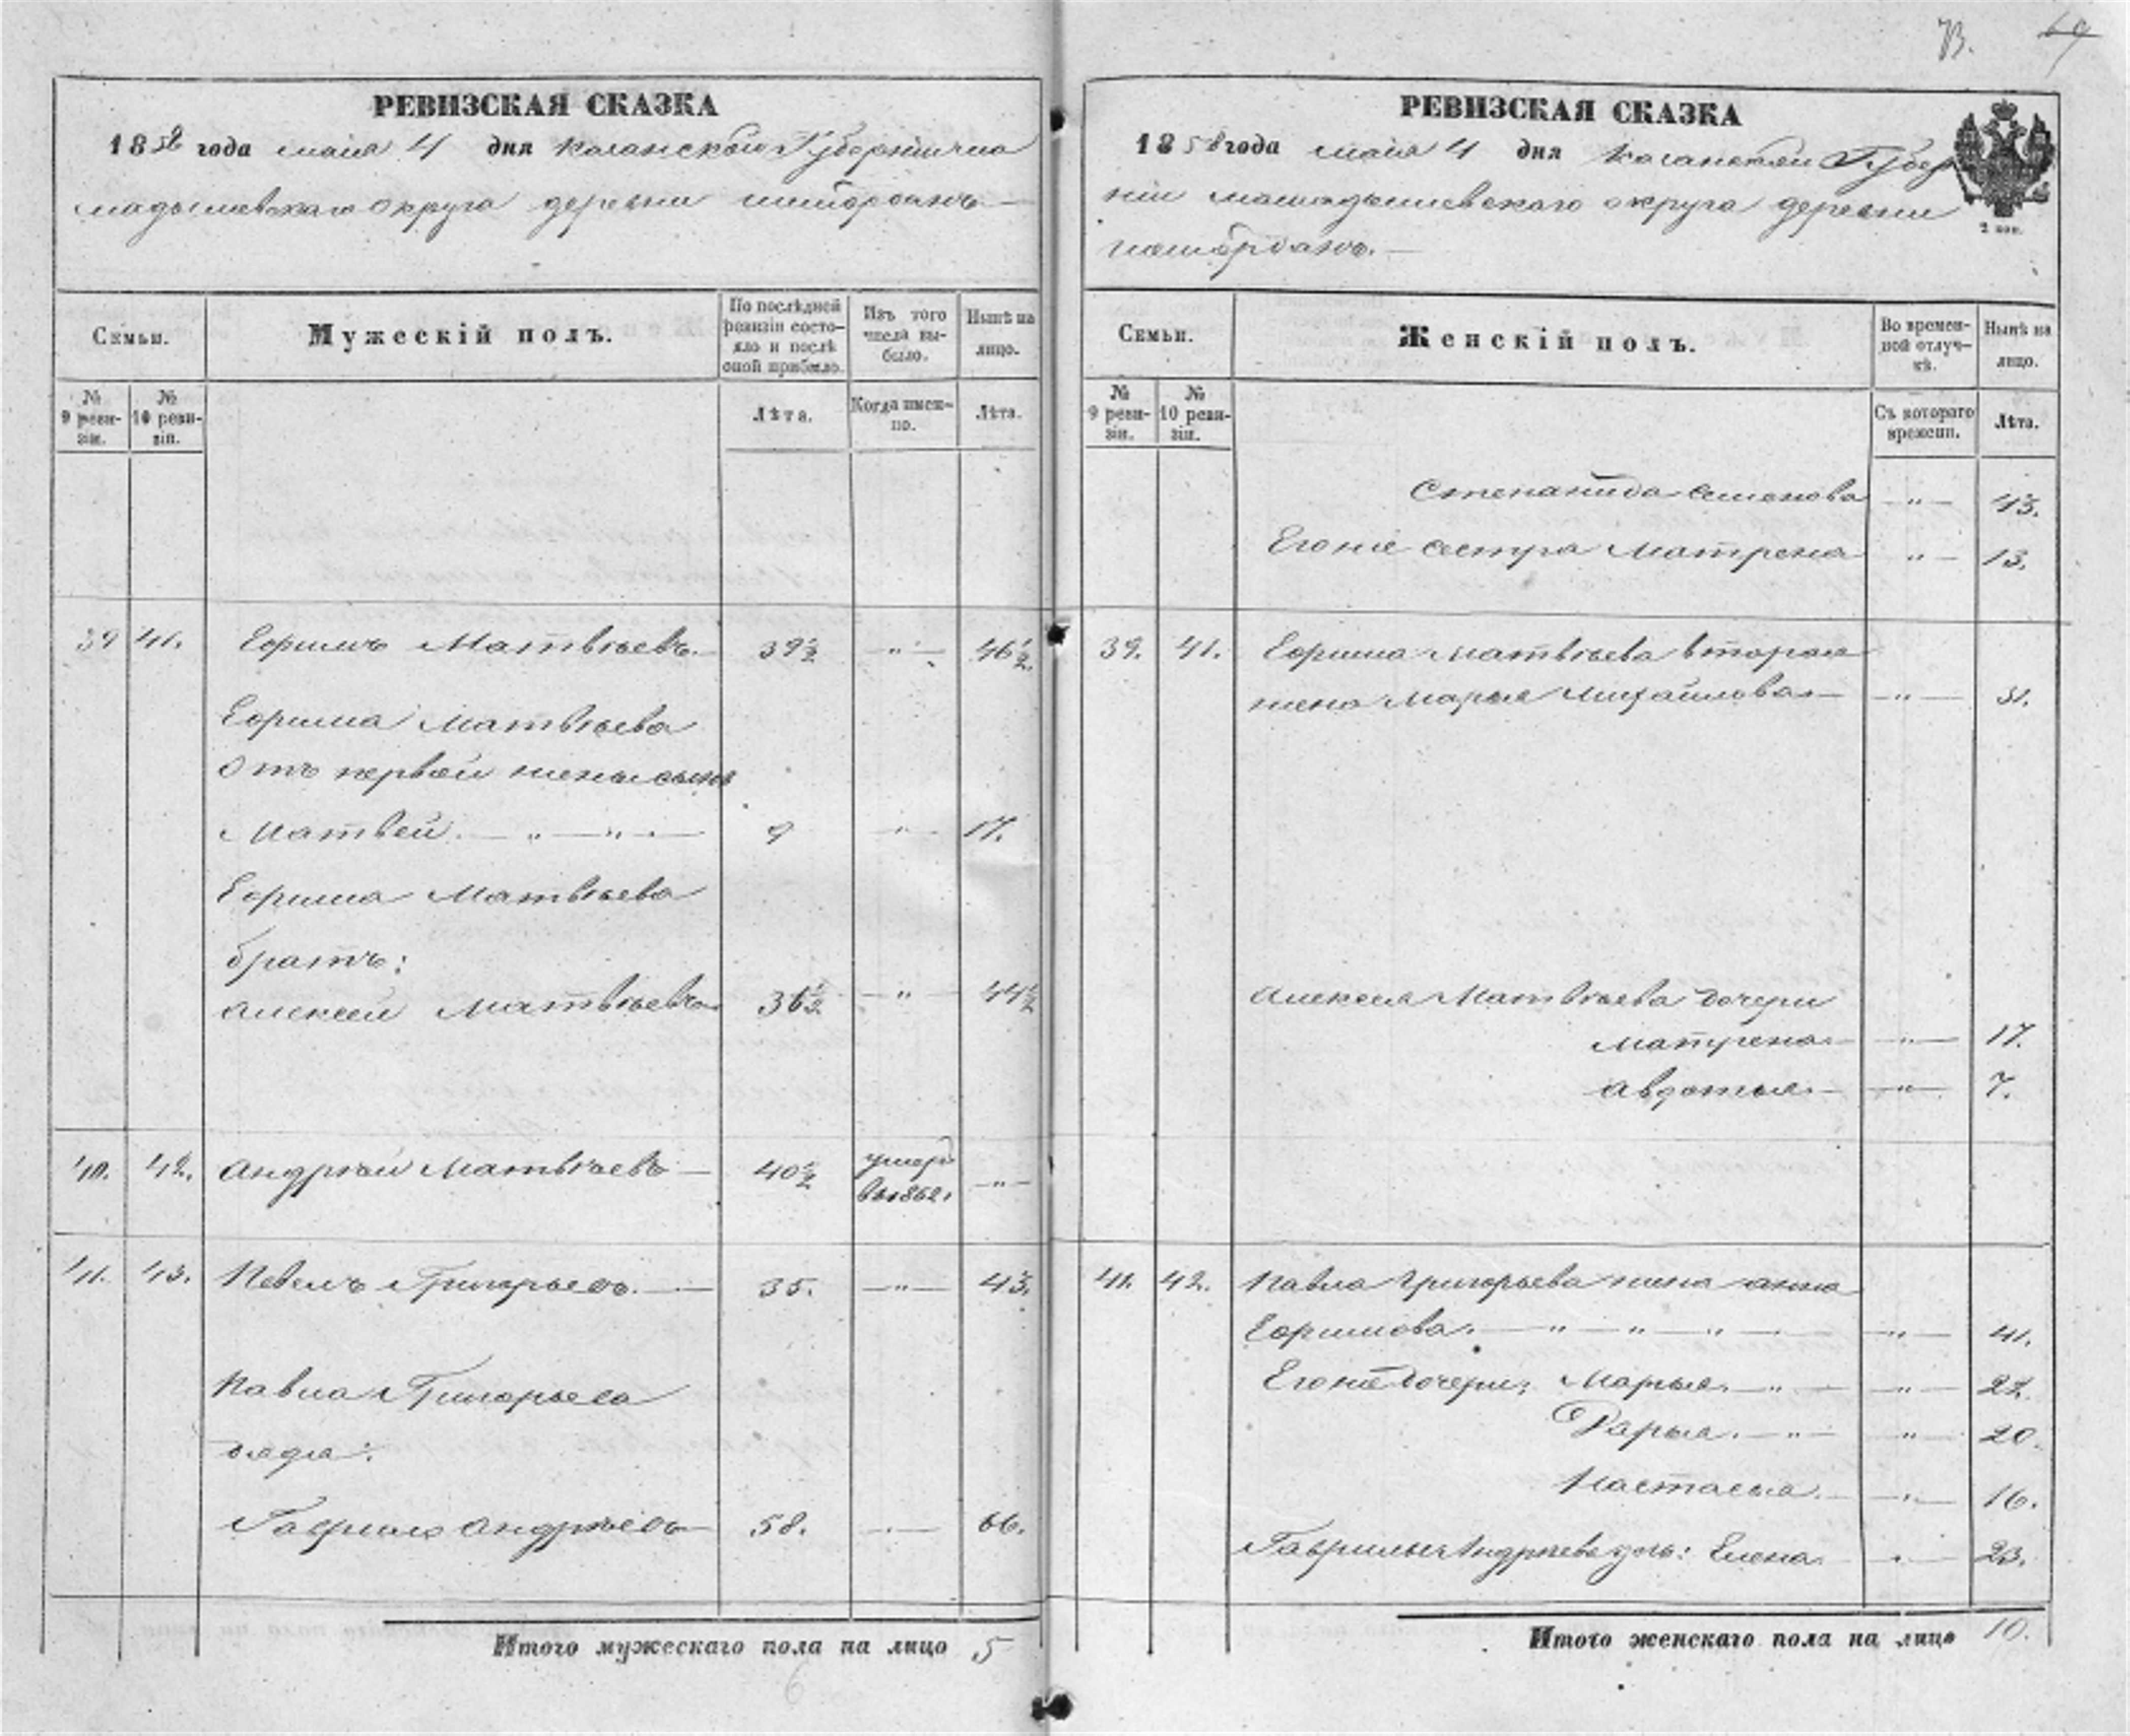 73. 69
РЕВИЗСКАЯ СКАЗКА
1858 года мая 4 дня Казанской Губерніи ма
мадышевскаго округа деревни
Семьи.
Мужескій полъ.
По послѣдней ревизіи состояло и послѣ оной прибыло.
Изъ того числа выбыло.
Нынѣ на лицо.
№ 9 ревизіи.
№ 10 ревизіи.
Лѣта.
Когда именно.
Лѣта.
39 41. Ефимъ Матвѣевъ. 39½ — " — 46½.
Ефима Матвѣева
Отъ первой жены сынъ
Матвей. — " — " — 9 " — 17.
Ефима Матвѣева
братъ:
Алексей Матвѣевъ 36½ — " — 44½
40. 42. Андрѣй Матвѣевъ — 40½ умеръ — " —
въ 1862.
41. 43. Павелъ Григорьевъ. — 35. — " — 43.
Павла Григорьева
дядя:
Гаврила Андрѣевъ 58. — 66.
Итого мужескаго пола на лицо 5
6
РЕВИЗСКАЯ СКАЗКА
1858 года мая 4 дня Казанской Губер
ніи мамадышевскаго округа деревни
2 коп.
Семьи.
Женскій полъ.
Во временной отлучкѣ.
Нынѣ на лицо.
№ 9 ревизіи.
№ 10 ревизіи.
Съ котораго времени.
Лѣта.
Степанида Семенова — " — 43.
Его же сестра Матрена " — 13.
39. 41. Ефима Матвѣева вторая
жена Марья Михайлова — — " — 31.
Алексея Матвѣева дочери
Матрена. — — " — 17.
Авдотья. — — " — 7.
41. 42. Павла Григорьева жена Анна
Ефимова. — " — " — " — — " — 41.
Его же дочери: Марья. — " — " — 22.
Дарья. — " — " — 20.
Настасья. — — " — 16.
Гаврилы Андрѣева дочь: Елена. — 23.
Итого женскаго пола на лицо 10.